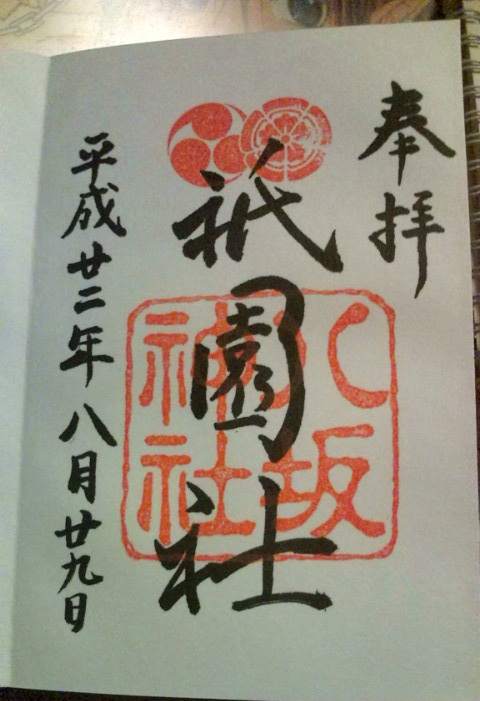 奉拝
祇園社
八坂
神社
平成廿二年八月廿九日